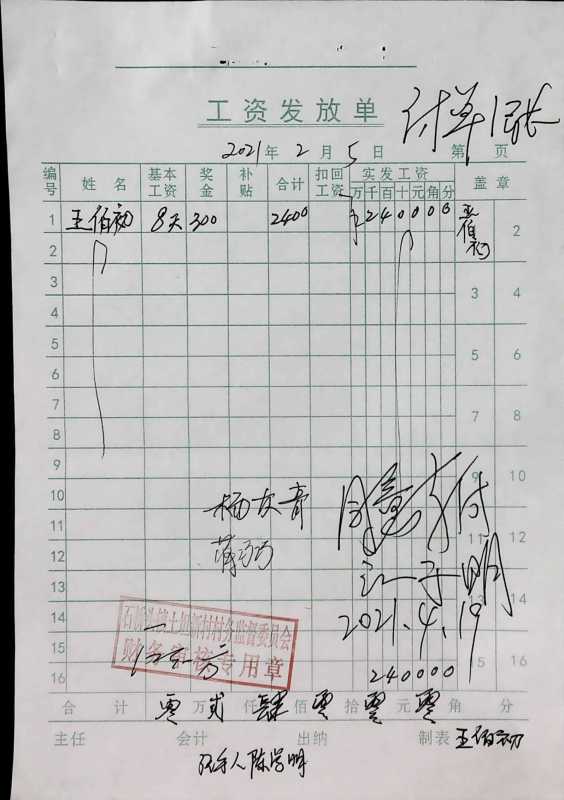 工资发放单
付单1张
2021年2月5日 第1页
编号 姓名 基本工资 奖金 补贴 合计 扣回工资 实发工资 万千百十元角分 盖章
1 王伯初 8天 300 2400 240000 王伯初 2
2
3 3 4
4
5 5 6
6
7 7 8
8
9 9 10
10 杨友膏 同意支付
11
12 12
13 江子明 14
14 2021.4.19
15 财务审核专用章 240000 15 16
16
合计 零万贰仟肆佰零拾零元零角 分
主任 会计 出纳 制表 王伯初
经手人陈学明